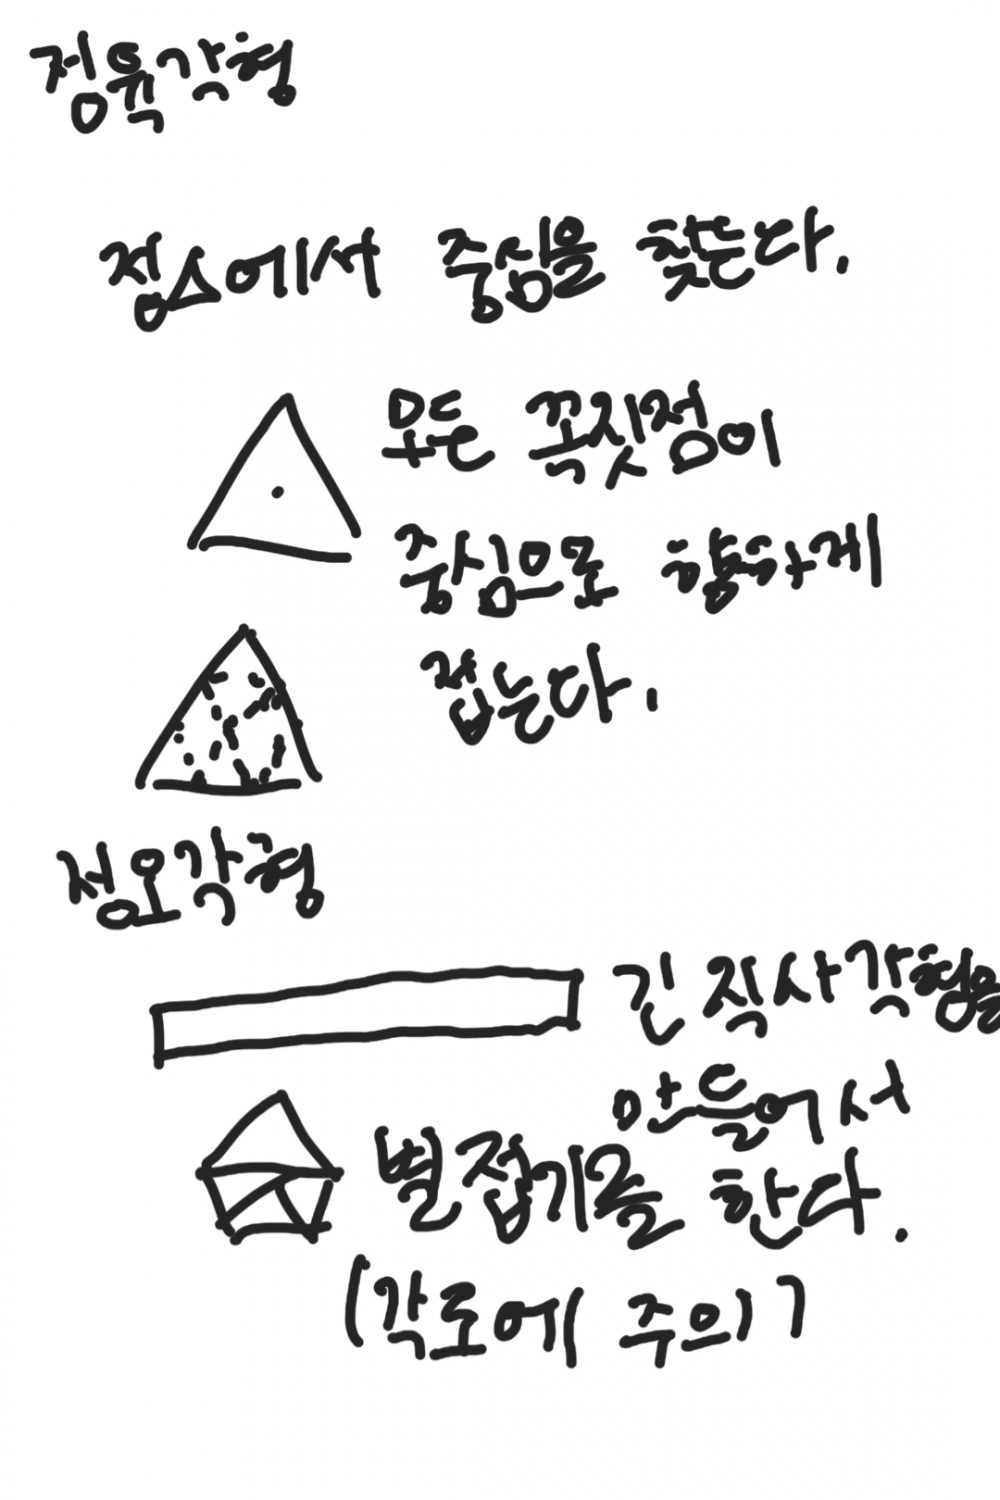 정육각형
정△에서 중심을 찾는다.
모든 꼭짓점이
중심으로 향하게
접는다.
정오각형
긴 직사각형을
만들어서
별접기를 한다.
(각도에 주의)